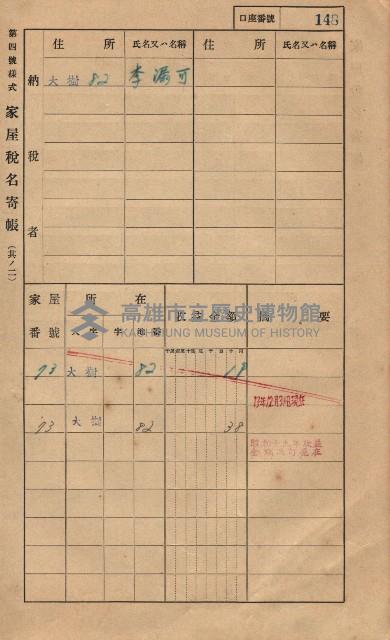 口座番號 148
第四號樣式 家屋稅名寄帳 (其ノ二)
住所 氏名又ハ名稱 住所 氏名又ハ名稱
納稅者
大樹 82 李漏可
家屋番號 所在 收益金額 摘要
大字 字 地番
高雄市立歷史博物館
KAOHSIUNG MUSEUM OF HISTORY
73 大樹 82 19
13年12月31日現在
73 大樹 82 38